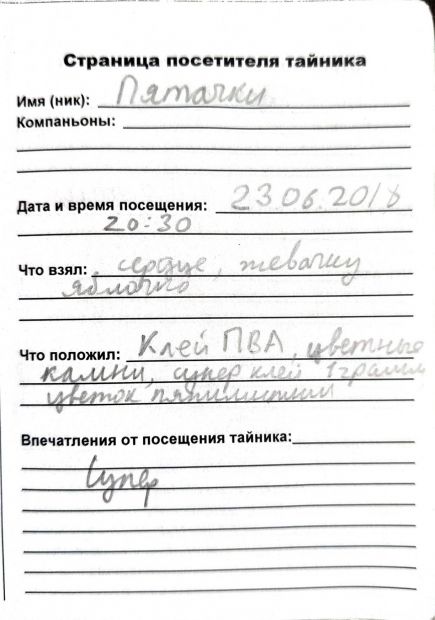 Страница посетителя тайника
Имя (ник): Пятачки
Компаньоны:
Дата и время посещения: 23.06.2018
20:30
Что взял: сердце, жевачку
яблочко
Что положил: Клей ПВА, цветные
камни, супер клей 1грамм
цветок пятилистний
Впечатления от посещения тайника:
Супер